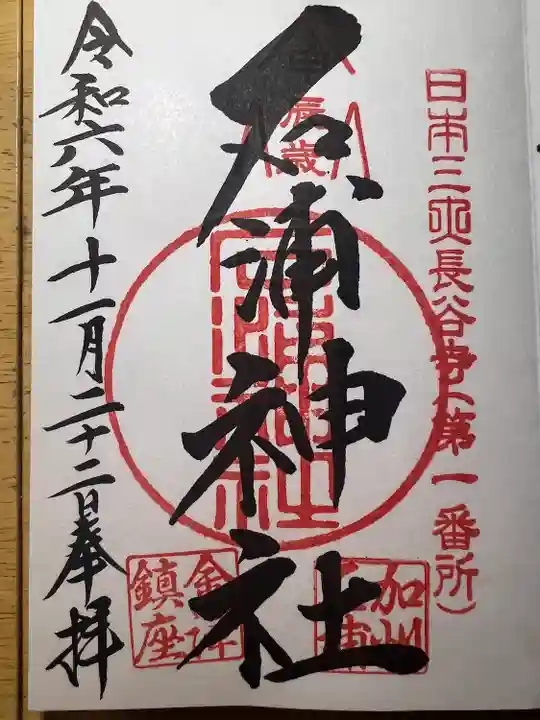 日本三大長谷寺(第一番所)
辰歳
石浦神社
加州
金沢
鎮座
令和六年十一月二十二日奉拝